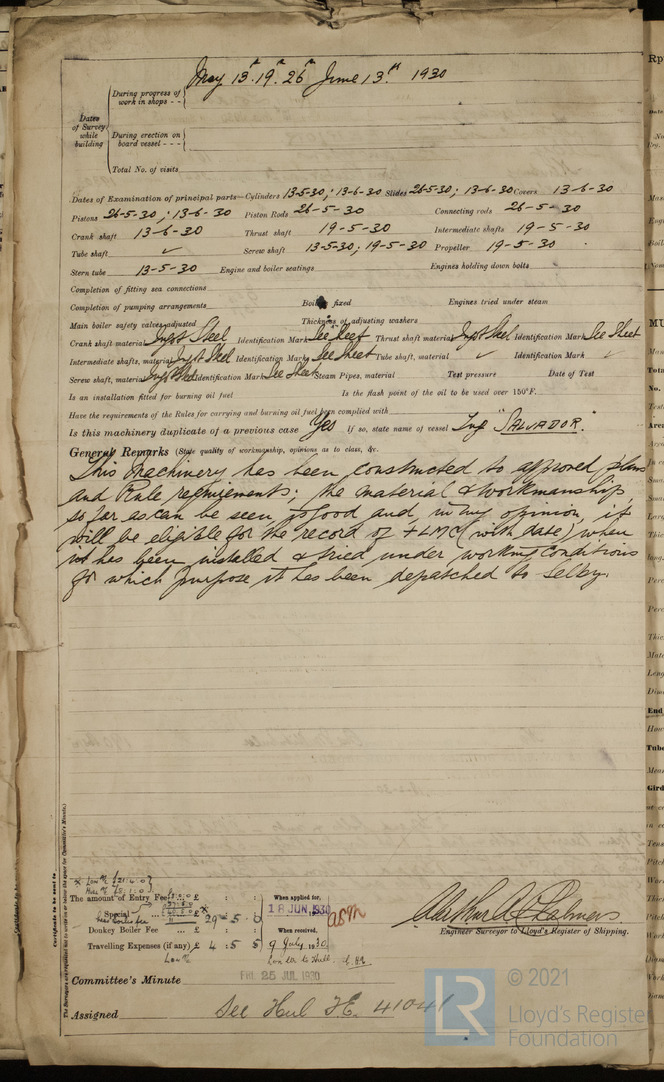 May 13th 19th 26th June 13th 1930
During progress of work in shops - -
Dates of Survey while building
During erection on board vessel - - -
Total No. of visits
Dates of Examination of principal parts—Cylinders 13-5-30; 13-6-30 Slides 26-5-30; 13-6-30 Covers 13-6-30
Pistons 26-5-30; 13-6-30 Piston Rods 26-5-30 Connecting rods 26-5-30
Crank shaft 13-6-30 Thrust shaft 19-5-30 Intermediate shafts 19-5-30
Tube shaft ✓ Screw shaft 13-5-30; 19-5-30 Propeller 19-5-30
Stern tube 13-5-30 Engine and boiler seatings Engines holding down bolts
Completion of fitting sea connections
Completion of pumping arrangements Boilers fixed Engines tried under steam
Main boiler safety valves adjusted Thickness of adjusting washers
Crank shaft material Ingot Steel Identification Mark See Sheet Thrust shaft material Ingot Steel Identification Mark See Sheet
Intermediate shafts, material Ingot Steel Identification Marks See Sheet Tube shaft, material ✓ Identification Mark ✓
Screw shaft, material Ingot Steel Identification Mark See Sheet Steam Pipes, material Test pressure Date of Test
Is an installation fitted for burning oil fuel Is the flash point of the oil to be used over 150°F.
Have the requirements of the Rules for carrying and burning oil fuel been complied with
Is this machinery duplicate of a previous case Yes If so, state name of vessel Tug "SALVADOR".
General Remarks (State quality of workmanship, opinions as to class, &c.
This machinery has been constructed to approved plans
and Rule requirements; the material & workmanship,
so far as can be seen, is good and, in my opinion, it
will be eligible for the record of +LMC (with date) when
it has been installed & tried under working conditions
for which purpose it has been depatched to Selby.
The amount of Entry Fee £ : : When applied for,
Special ... £ 29 : 5 : 0 18 JUN 1930
Donkey Boiler Fee ... £ : : When received,
Travelling Expenses (if any) £ 4 : 5 : 5 9 July 1930
Engineer Surveyor to Lloyd's Register of Shipping.
Committee's Minute FRI. 25 JUL 1930
Assigned See Hul F.E. 41041
© 2021
LR Lloyd's Register
Foundation